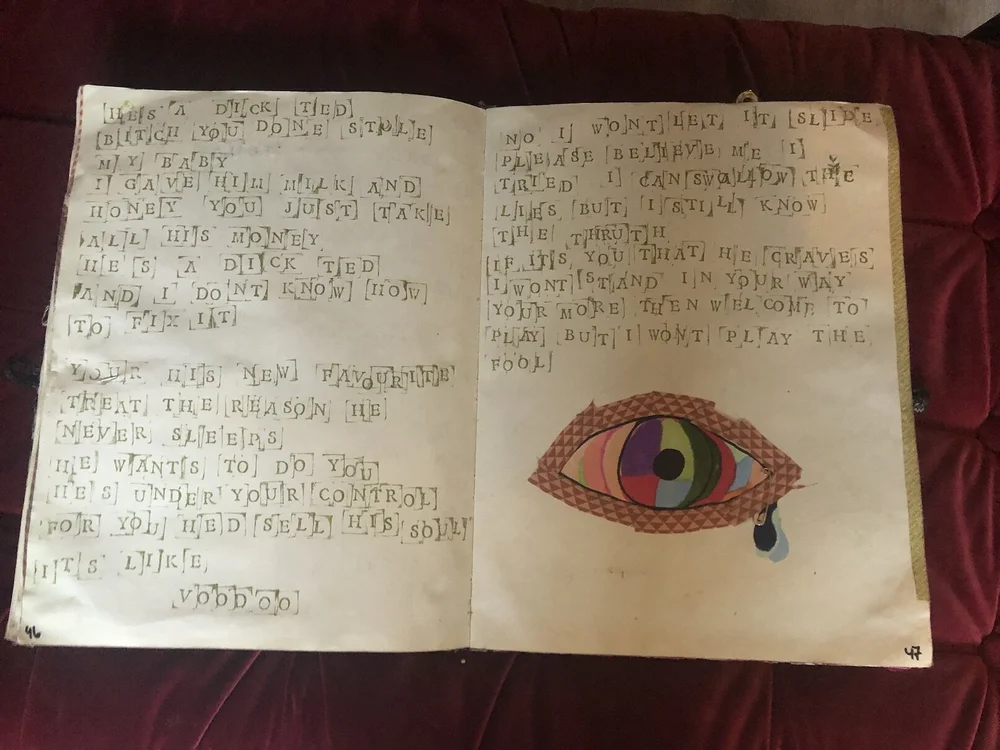 HES A DICK TED
BITCH YOU DONE STOLE
MY BABY
I GAVE HIM MILK AND
HONEY YOU JUST TAKE
ALL HIS MONEY
HE S A DICK TED
AND I DONT KNOW HOW
TO FIX IT
YOUR HIS NEW FAVOURITE
TREAT THE REASON HE
NEVER SLEEPS
HE WANTS TO DO YOU
HES UNDER YOUR CONTROL
FOR YOU HED SELL HIS SOUL
ITS LIKE
VOODOO
46
NO I WONT LET IT SLIDE
PLEASE BELIEVE ME I
TRIED I CAN SWALLOW THE
LIES BUT I STILL KNOW
THE THRUTH
IF ITS YOU THAT HE CRAVES
I WONT STAND IN YOUR WAY
YOUR MORE THEN WELCOME TO
PLAY BUT I WONT PLAY THE
FOOL
47